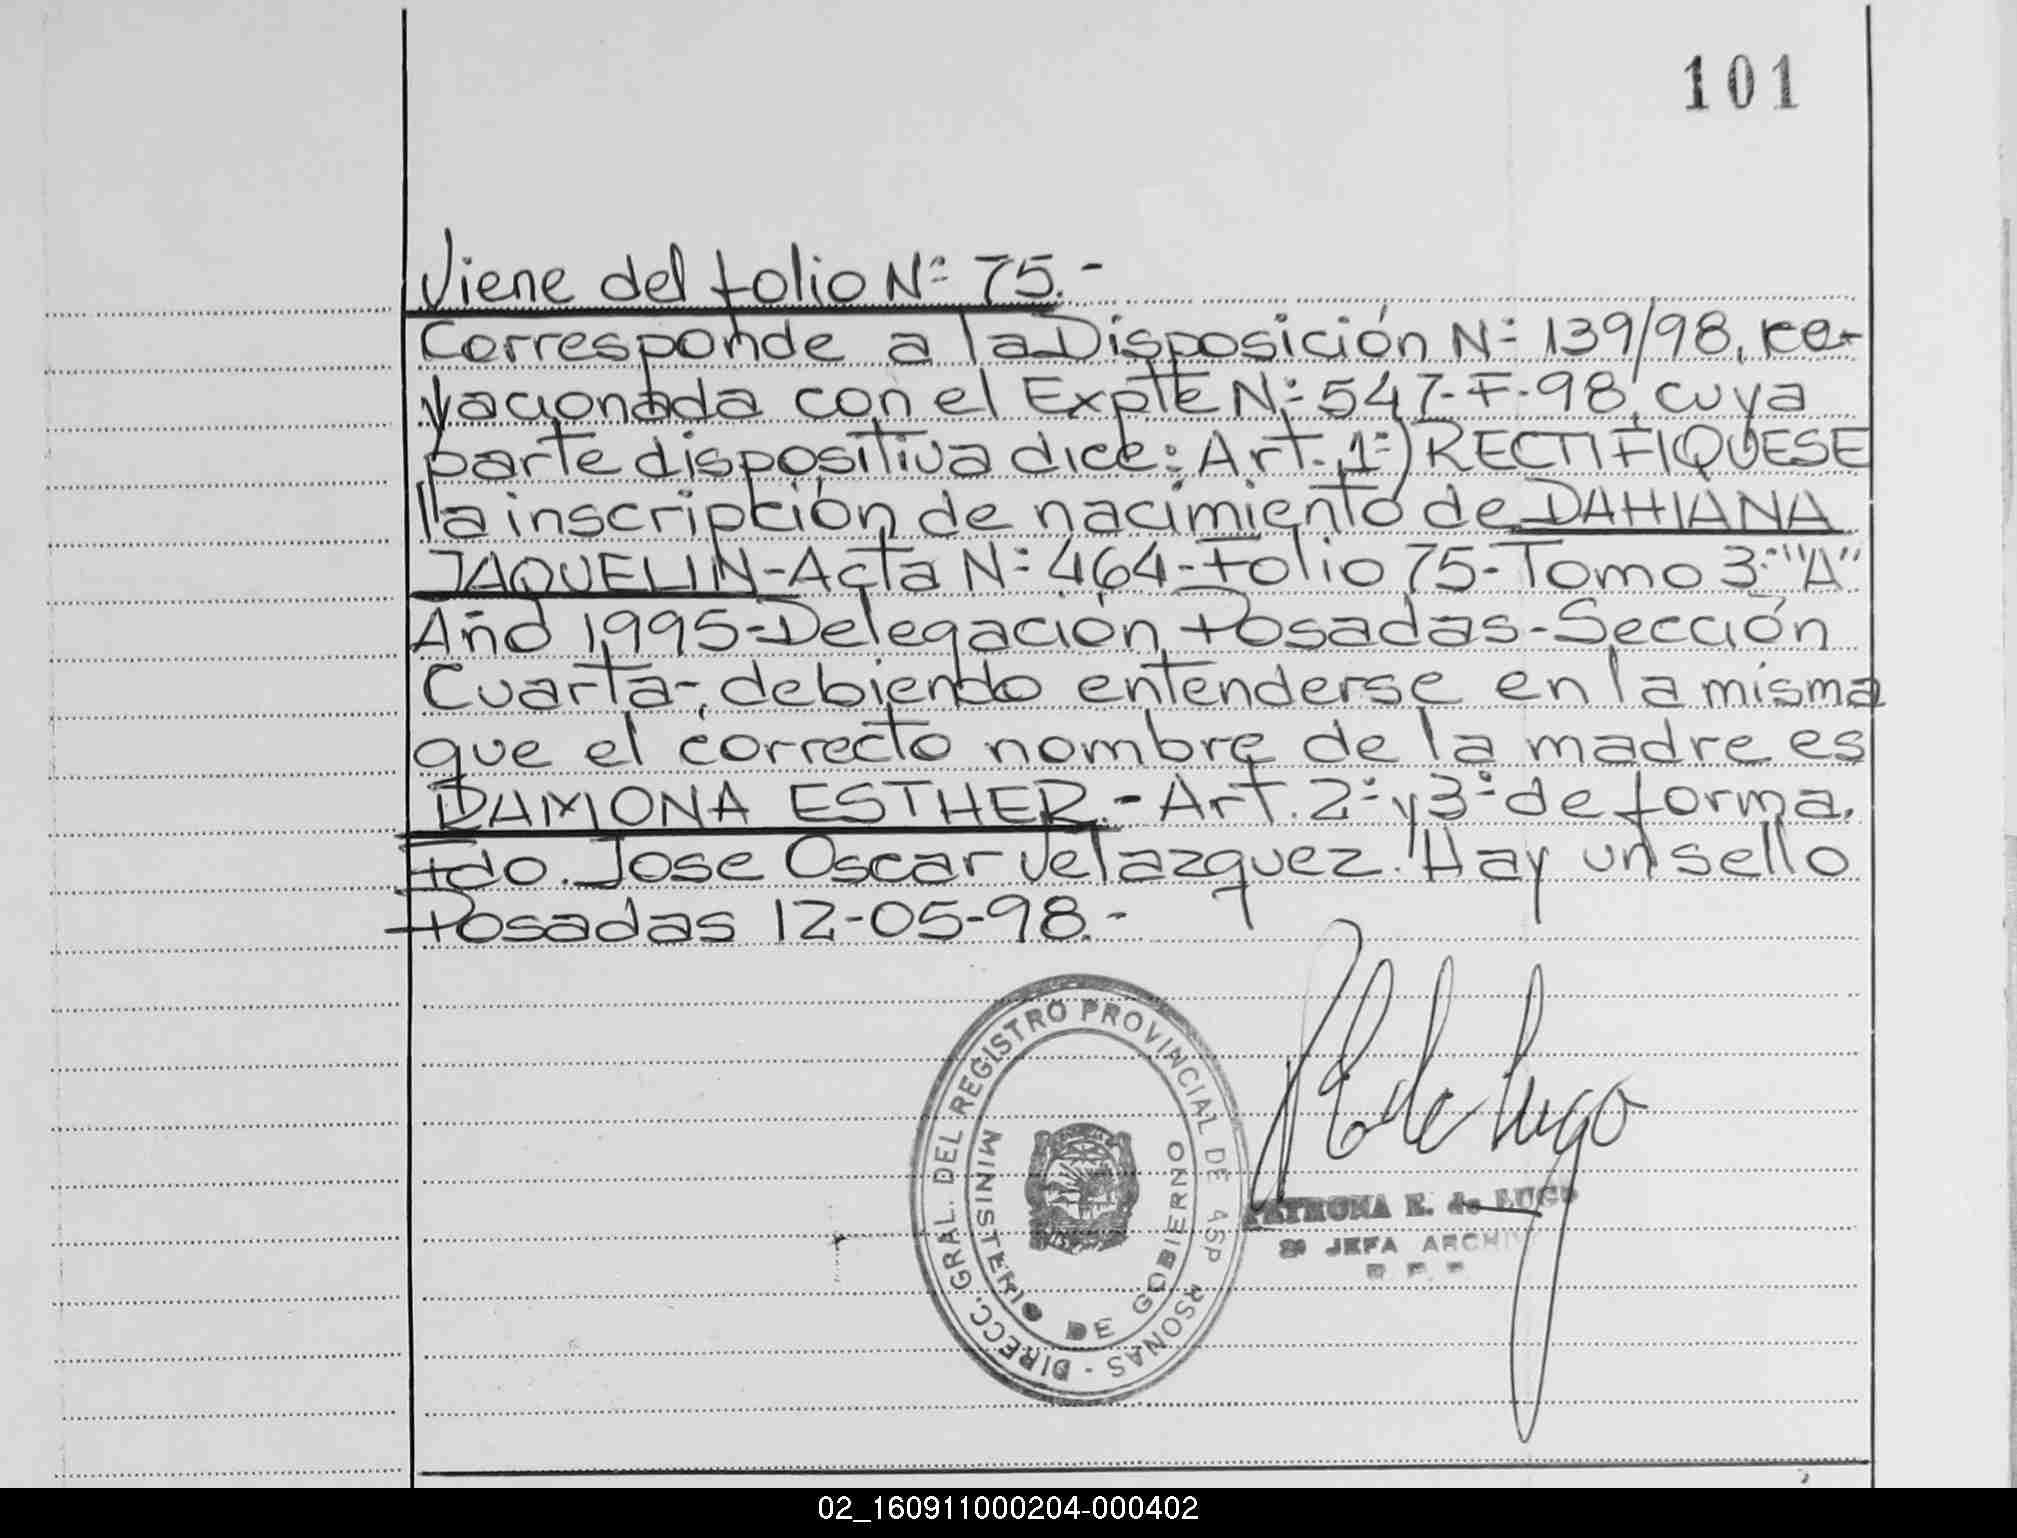 101
Viene del folio Nº 75.-
Corresponde a la Disposición Nº 139/98, re-
lacionada con el Expte Nº 547-F-98, cuya
parte dispositiva dice: Art. 1º) RECTIFIQUESE
la inscripción de nacimiento de DAHIANA
JAQUELIN-Acta Nº 464-Folio 75-Tomo 3º "A"
Año 1995-Delegación Posadas-Sección
Cuarta-, debiendo entenderse en la misma
que el correcto nombre de la madre es
RAMONA ESTHER.- Art. 2º y 3º de forma.
Fdo. Jose Oscar Velazquez. Hay un sello
Posadas 12-05-98.-
DIRECC. GRAL. DEL REGISTRO PROVINCIAL DE
RSONAS -
MINISTERIO DE GOBIERNO
de Lugo
PETRONA E. de LUGO
JEFA ARCHIVO
02_160911000204-000402